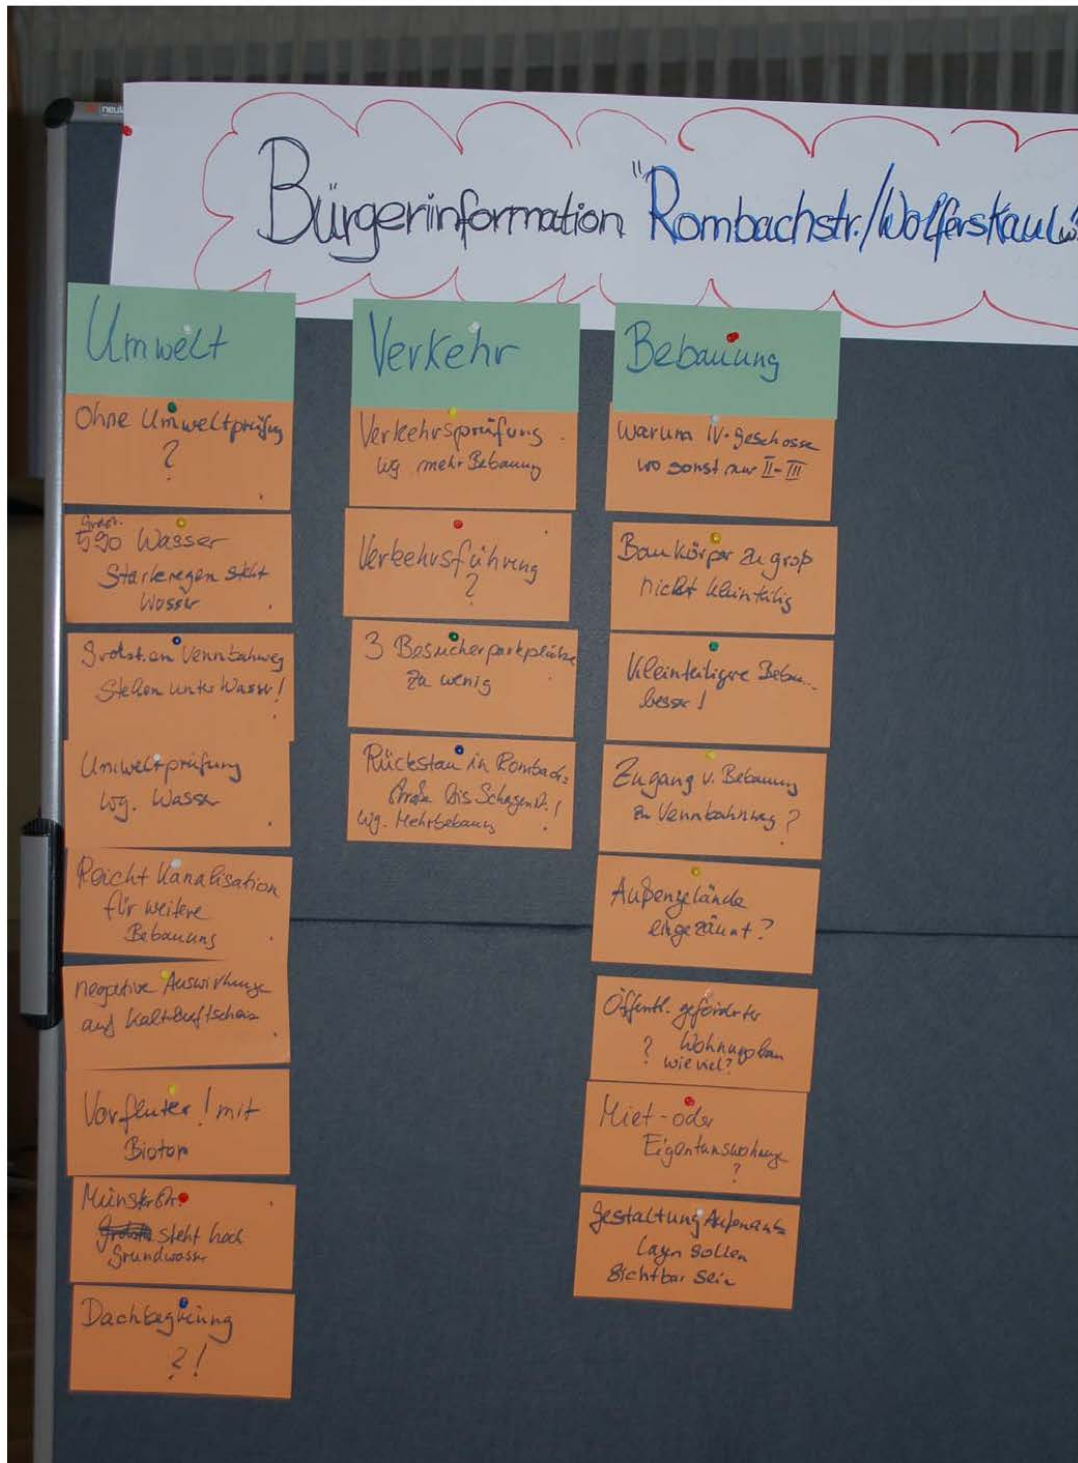 neula
Bürgerinformation "Rombachstr./Wolferskaul
Umwelt
Ohne Umweltprüfung
?
Grdst.
590 Wasser
Starkregen steht
Wasser
Grdst. an Vennbahnweg
Stehen unter Wasser!
Umweltprüfung
wg. Wasser
Reicht Kanalisation
für weitere
Bebauung
negative Auswirkunge
auf Kaltluft
Vorfluter! mit
Biotop
Münsterstr.
steht hoch
Grundwasser
Dachbegrünung
?!
Verkehr
Verkehrsprüfung
wg. mehr Bebauung
Verkehrsführung
?
3 Besucherparkplätze
zu wenig
Rückstau in Rombach-
straße bis Schagenstr.!
wg. Mehrbebauung
Bebauung
Warum IV-Geschosse
wo sonst nur II-III
Baukörper zu groß
nicht kleinteilig
Kleinteiligere Bebau...
besser!
Zugang v. Bebauung
zu Vennbahnweg?
Außengelände
eingezäunt?
Öffentl. geförderter
? Wohnungsbau
wie viel?
Miet- oder
Eigentumswohnunge
?
Gestaltung Außenan
lagen sollen
sichtbar sein